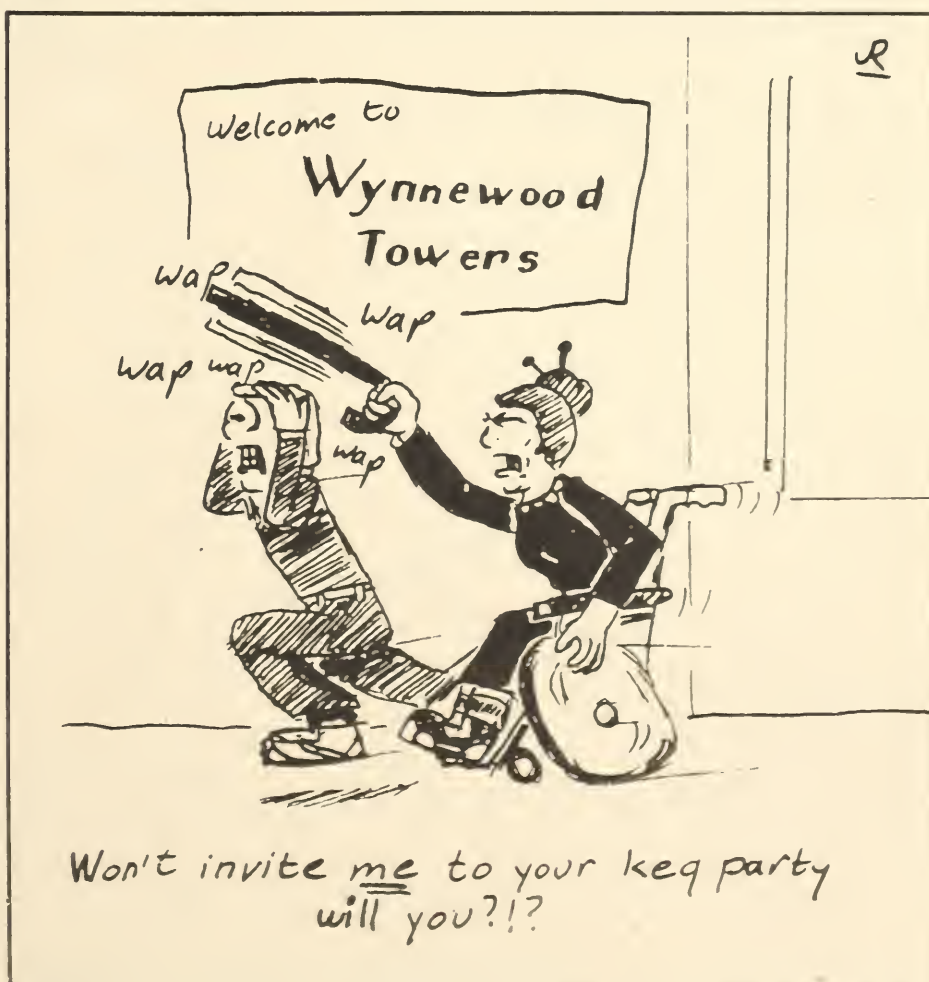 R
Welcome to
Wynnewood
Towers
wap
wap
wap wap
wap
Won't invite me to your keg party
will you?!?